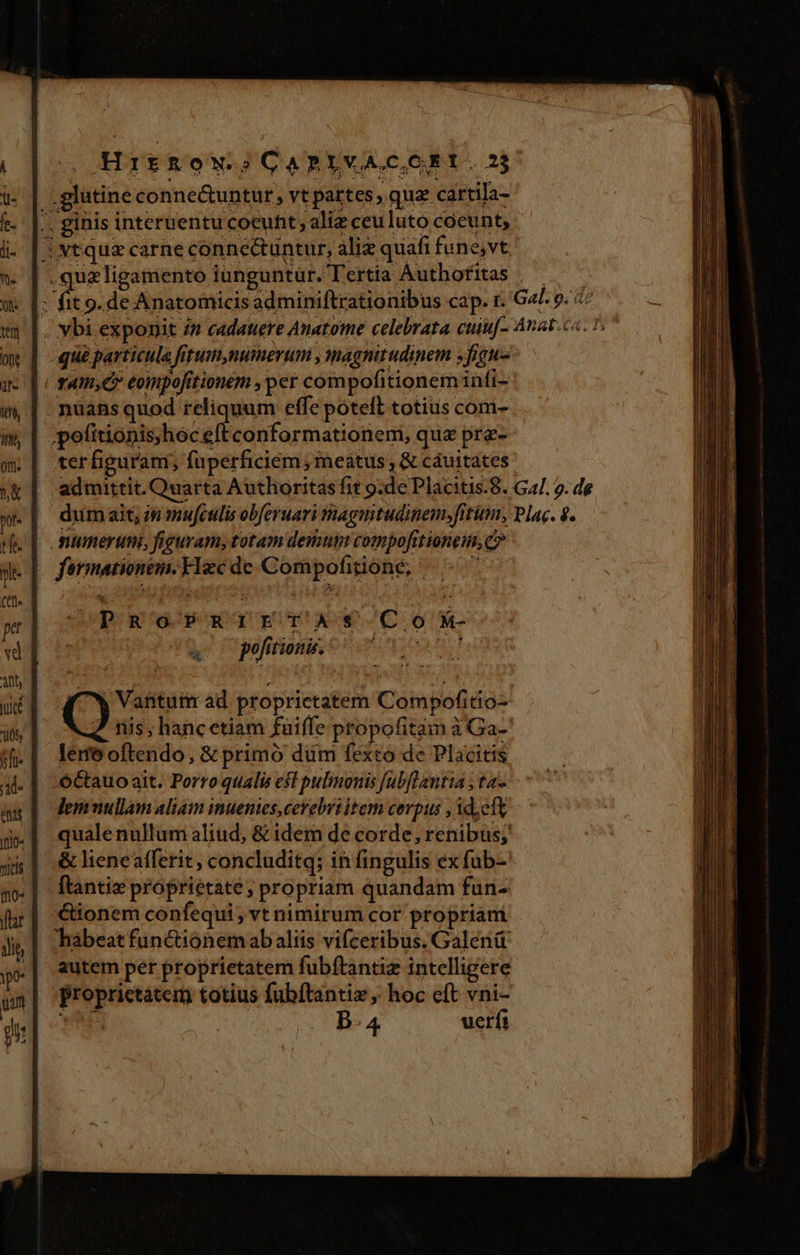 HIERON. CAPIVACCEI. 23
glutine connectuntur, vt partes, quæ cartila-
ginis interuentu coeunt, aliæ ceu luto coeunt,
vt quæ carne connectuntur, aliæ quasi fune, vt
quæ ligamento iunguntur. Tertia Authoritas
fit 9. de Anatomicis administrationibus cap. 1. Gal. 9. de
vbi exponit in cadauere Anatome celebrata cuius- Anat. ca. 1.
que particulæ situm, numerum, magnitudinem, figu-
ram, & compositionem, per compositionem insi-
nuans quod reliquum esse potest totius com-
positionis, hoc est conformationem, quæ præ-
ter figuram, superficiem, meatus, & cauitates
admittit. Quarta Authoritas fit 9. de Placitis. 8. Gal. 9. de
dum ait, in musculis obseruari magnitudinem, situm, Plac. 8.
numerum, figuram, totam demum compositionem, &
formationem. Hæc de Compositione,
PROPRIETAS COM-
positionis.
QVantum ad proprietatem Compositio-
nis, hanc etiam fuisse propositam à Ga-
leno ostendo, & primò dum sexto de Placitis
octauo ait. Porro qualis est pulmonis substantia, ta-
lem nullam aliam inuenies, cerebri item corpus, id est
quale nullum aliud, & idem de corde, renibus,
& liene asserit, concluditq; in singulis ex sub-
stantiæ proprietate, propriam quandam fun-
ctionem consequi, vt nimirum cor propriam
habeat functionem ab aliis visceribus. Galenū
autem per proprietatem substantiæ intelligere
proprietatem totius substantiæ, hoc est vni-
B 4 uersi